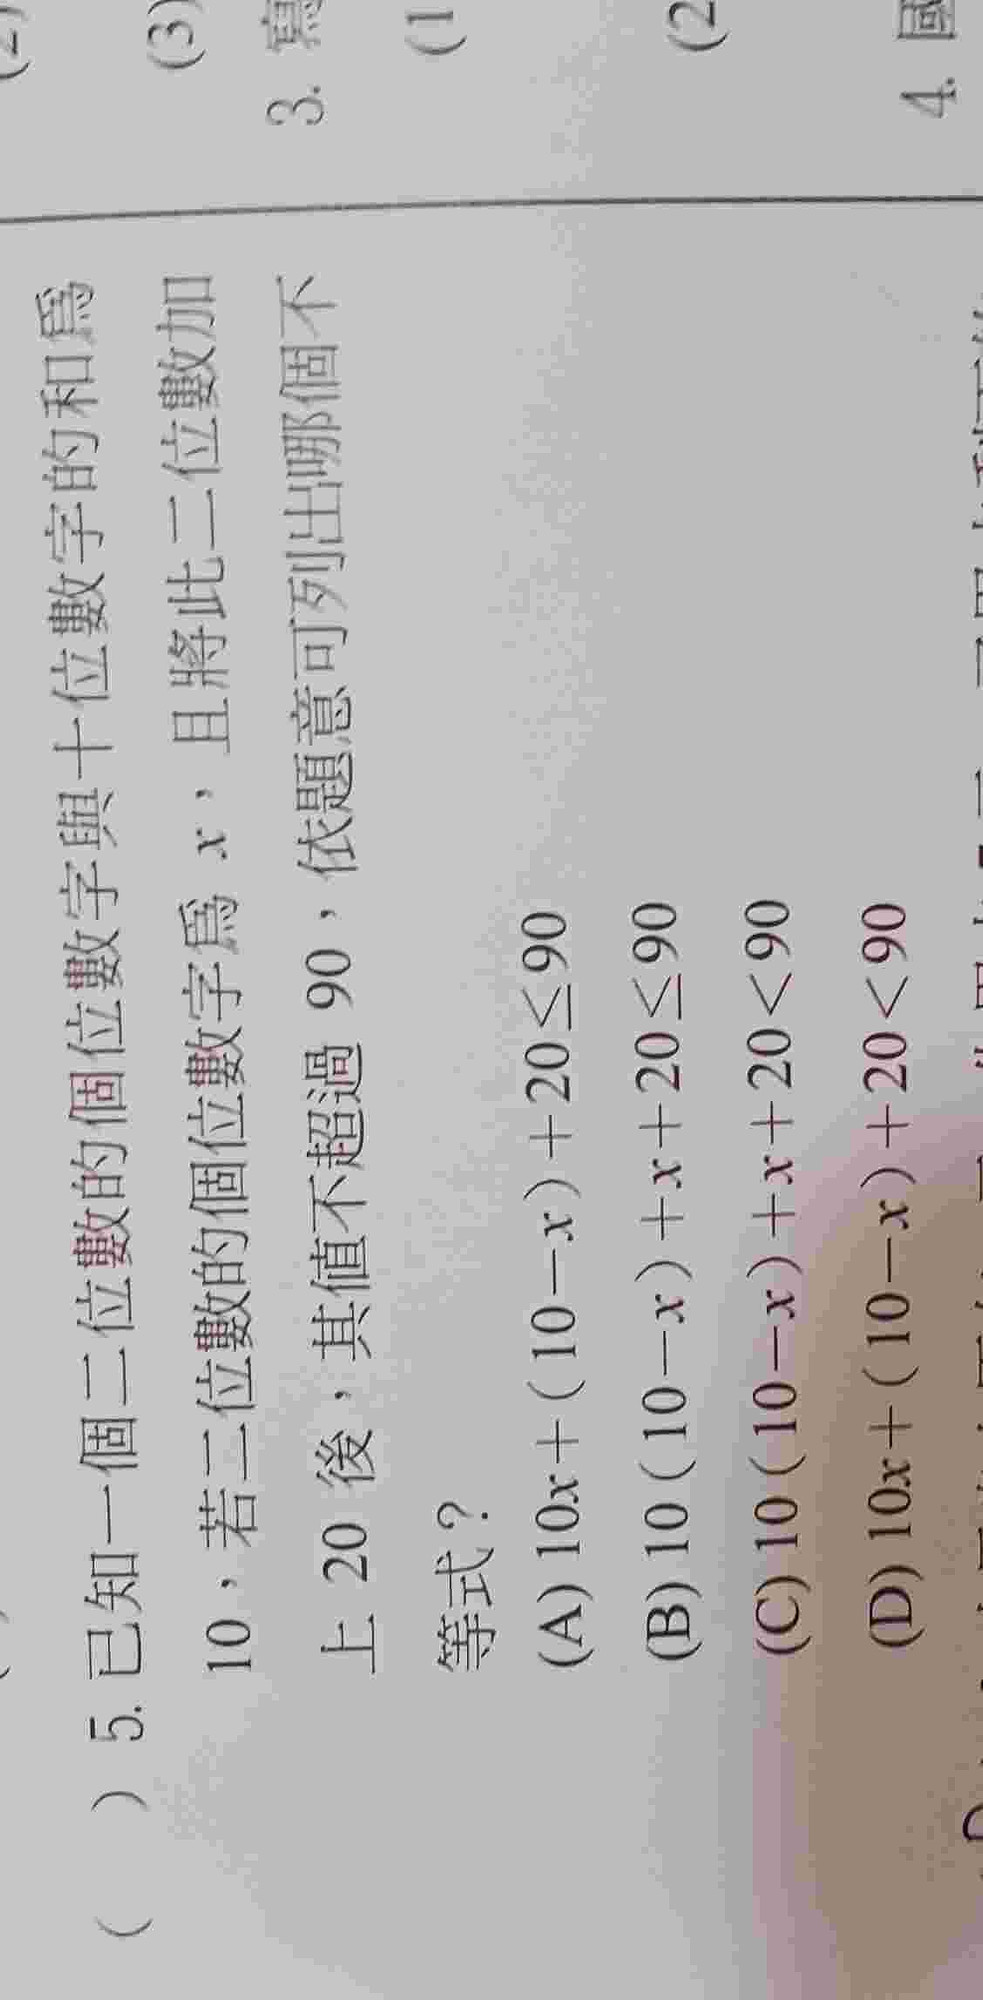 ( ) 5. 已知一個二位數的個位數字與十位數字的和為
10，若二位數的個位數字為 x，且將此二位數加
上 20 後，其值不超過 90，依題意可列出哪個不
等式？
(A) 10x＋(10－x)＋20≤90
(B) 10(10－x)＋x＋20≤90
(C) 10(10－x)＋x＋20＜90
(D) 10x＋(10－x)＋20＜90
(3)
3. 寫
(1
(2
4. 國